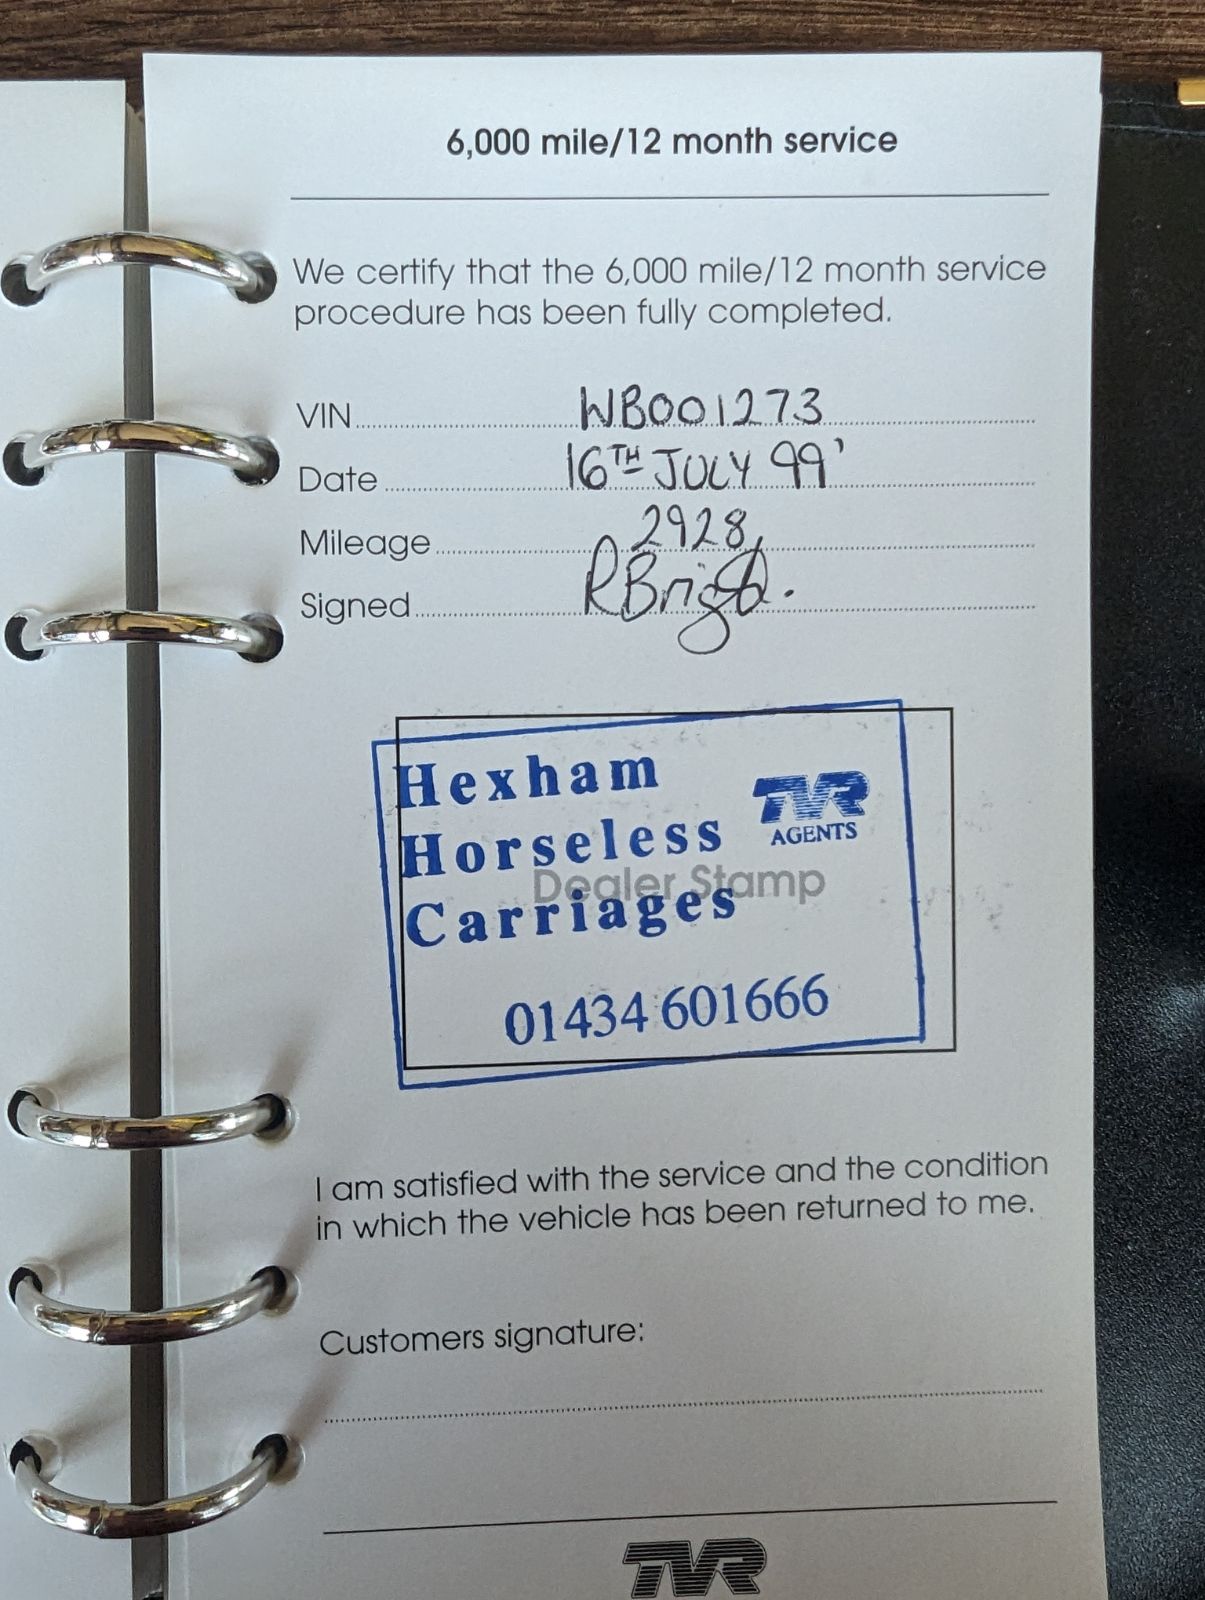 6,000 mile/12 month service
We certify that the 6,000 mile/12 month service
procedure has been fully completed.
VIN WB001273
Date 16TH JULY 99'
Mileage 2928
Signed RBright.
Hexham
Horseless
Carriages
TVR
AGENTS
Dealer Stamp
01434 601666
I am satisfied with the service and the condition
in which the vehicle has been returned to me.
Customers signature:
TVR